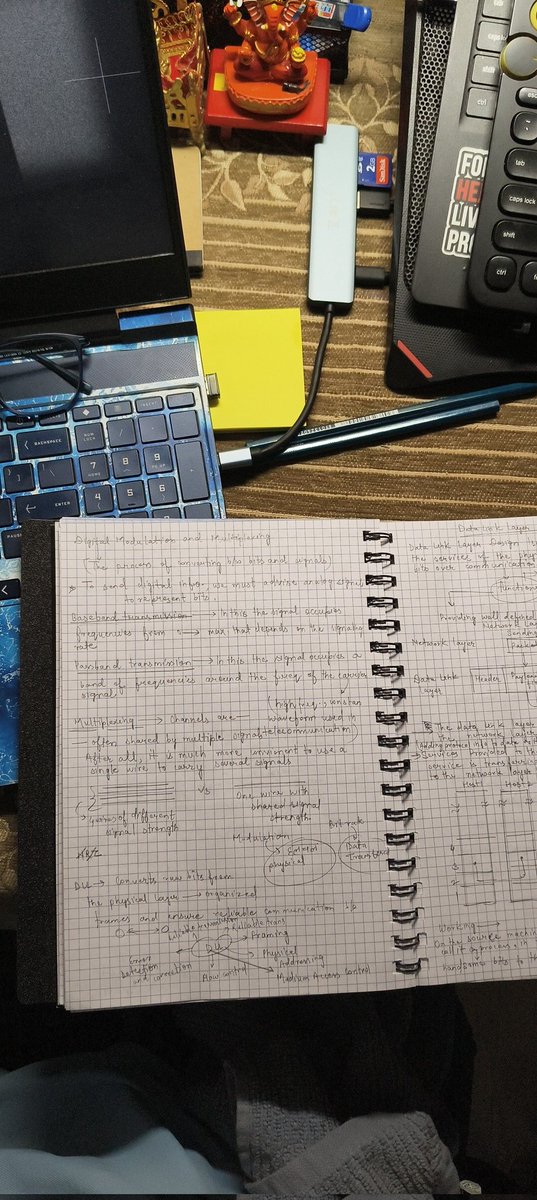 SanDisk
2GB
FO
HE
LIV
PRO
esc
tab
caps lock
shift
ctrl
BACKSPACE
NUM LOCK
7
HOME
8
9
PG UP
4
5
6
ENTER
PAUSE
Digital Modulation and Multiplexing
(The process of converting b/w bits and signals)
To send digital info. we must devise analog signals
to represent bits.
Baseband transmission → In this the signal occupies
frequencies from → max that depends on the signaling
rate
Passband transmission → In this the signal occupies a
band of frequencies around the freq of the carrier
signal
Multiplexing → Channels are
often shared by multiple signals
(high freq, constan
waveform used in
telecommunication)
After all, it is much more convenient to use a
single wire to carry several signals
vs
wires of different
signal strength
One wire with
shared signal
strength
Modulation
physical
Bit rate
Data
Transfer
DLL → Converts raw bits from
the physical layer → organized
frames and ensure reliable communication
DLL
Framing
Physical
Addressing
Medium Access Control
Flow control
Error
Detection
and correction
Data Link Layer
Data Link Layer Design
the services of the phy
bits over communication
Function
Providing well defined
Network Laye
Sending
Network Layer
Packe
Data Link
Layer
Header
Paylo
The data link layer
the network laye
Adding protocol info to data
Services provided to th
service is transferrin
to the network layer
Host 1
Host 2
4
3
2
Working:
On the source machin
call it a process, in
hands some bits to th